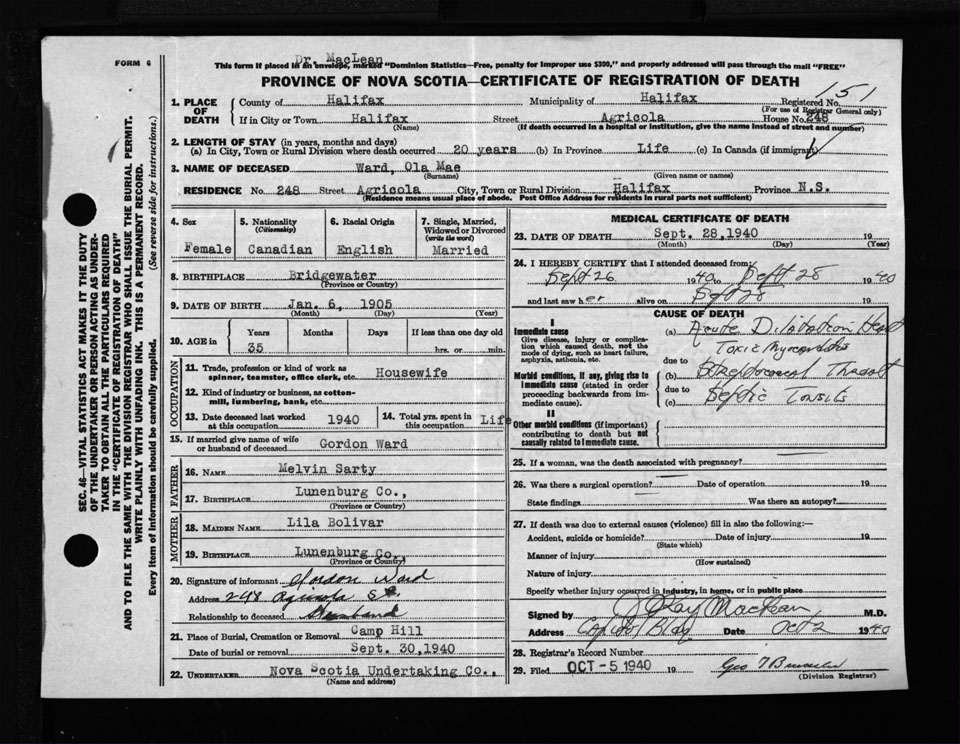 FORM 6
Dr. MacLean
This form if placed in an envelope, marked "Dominion Statistics—Free, penalty for improper use $300," and properly addressed will pass through the mail "FREE"
PROVINCE OF NOVA SCOTIA—CERTIFICATE OF REGISTRATION OF DEATH
151
1. PLACE OF DEATH
County of Halifax Municipality of Halifax Registered No.
(For use of Registrar General only)
If in City or Town Halifax Street Agricola House No. 248
(Name) (If death occurred in a hospital or institution, give the name instead of street and number)
2. LENGTH OF STAY (in years, months and days)
(a) In City, Town or Rural Division where death occurred 20 years (b) In Province Life (c) In Canada (if immigrant)
3. NAME OF DECEASED Ward, Ola Mae
(Surname) (Given name or names)
RESIDENCE No. 248 Street Agricola City, Town or Rural Division Halifax Province N.S.
(Residence means usual place of abode. Post Office Address for residents in rural parts not sufficient)
4. Sex
Female
5. Nationality
(Citizenship)
Canadian
6. Racial Origin
English
7. Single, Married, Widowed or Divorced
(write the word)
Married
8. BIRTHPLACE Bridgewater
(Province or Country)
9. DATE OF BIRTH Jan. 6, 1905
(Month) (Day) (Year)
10. AGE in
Years Months Days If less than one day old
35 hrs. or min.
OCCUPATION
11. Trade, profession or kind of work as
spinner, teamster, office clerk, etc. Housewife
12. Kind of industry or business, as cotton-
mill, lumbering, bank, etc.
13. Date deceased last worked
at this occupation 1940
14. Total yrs. spent in
this occupation Life
15. If married give name of wife
or husband of deceased Gordon Ward
FATHER
16. NAME Melvin Sarty
17. BIRTHPLACE Lunenburg Co.,
(Province or Country)
MOTHER
18. MAIDEN NAME Lila Bolivar
19. BIRTHPLACE Lunenburg Co.,
(Province or Country)
20. Signature of informant Gordon Ward
Address 248 Agricola St
Relationship to deceased Husband
21. Place of Burial, Cremation or Removal Camp Hill
Date of burial or removal Sept. 30, 1940
22. UNDERTAKER Nova Scotia Undertaking Co.,
(Name and address)
MEDICAL CERTIFICATE OF DEATH
23. DATE OF DEATH Sept. 28, 1940 19
(Month) (Day) (Year)
24. I HEREBY CERTIFY that I attended deceased from
Sept 26 1940 to Sept 28 1940
and last saw her alive on Sept 28 19
CAUSE OF DEATH
I
Immediate cause
Give disease, injury or complica-
tion which caused death, not the
mode of dying, such as heart failure,
asphyxia, asthenia, etc.
(a) Acute Dilatation Heart
Toxic Myocarditis
due to
Morbid conditions, if any, giving rise to
immediate cause (stated in order
proceeding backwards from im-
mediate cause).
(b) Streptococcal Throat
due to
(c) Septic Tonsils
II
Other morbid conditions (if important)
contributing to death but not
causally related to immediate cause.
25. If a woman, was the death associated with pregnancy?
26. Was there a surgical operation? Date of operation 19
State findings Was there an autopsy?
27. If death was due to external causes (violence) fill in also the following:—
Accident, suicide or homicide? Date of injury 19
(State which)
Manner of injury
(How sustained)
Nature of injury
Specify whether injury occurred in industry, in home, or in public place
Signed by J Ray MacLean M.D.
Address Capitol Bldg Date Oct 2 1940
28. Registrar's Record Number
29. Filed OCT - 5 1940 19
(Division Registrar)
SEC. 46—VITAL STATISTICS ACT MAKES IT THE DUTY
OF THE UNDERTAKER OR PERSON ACTING AS UNDER-
TAKER TO OBTAIN ALL THE PARTICULARS REQUIRED
IN THE "CERTIFICATE OF REGISTRATION OF DEATH"
AND TO FILE THE SAME WITH THE DIVISION REGISTRAR WHO SHALL ISSUE THE BURIAL PERMIT.
WRITE PLAINLY WITH UNFADING INK. THIS IS A PERMANENT RECORD.
Every item of information should be carefully supplied. (See reverse side for instructions.)